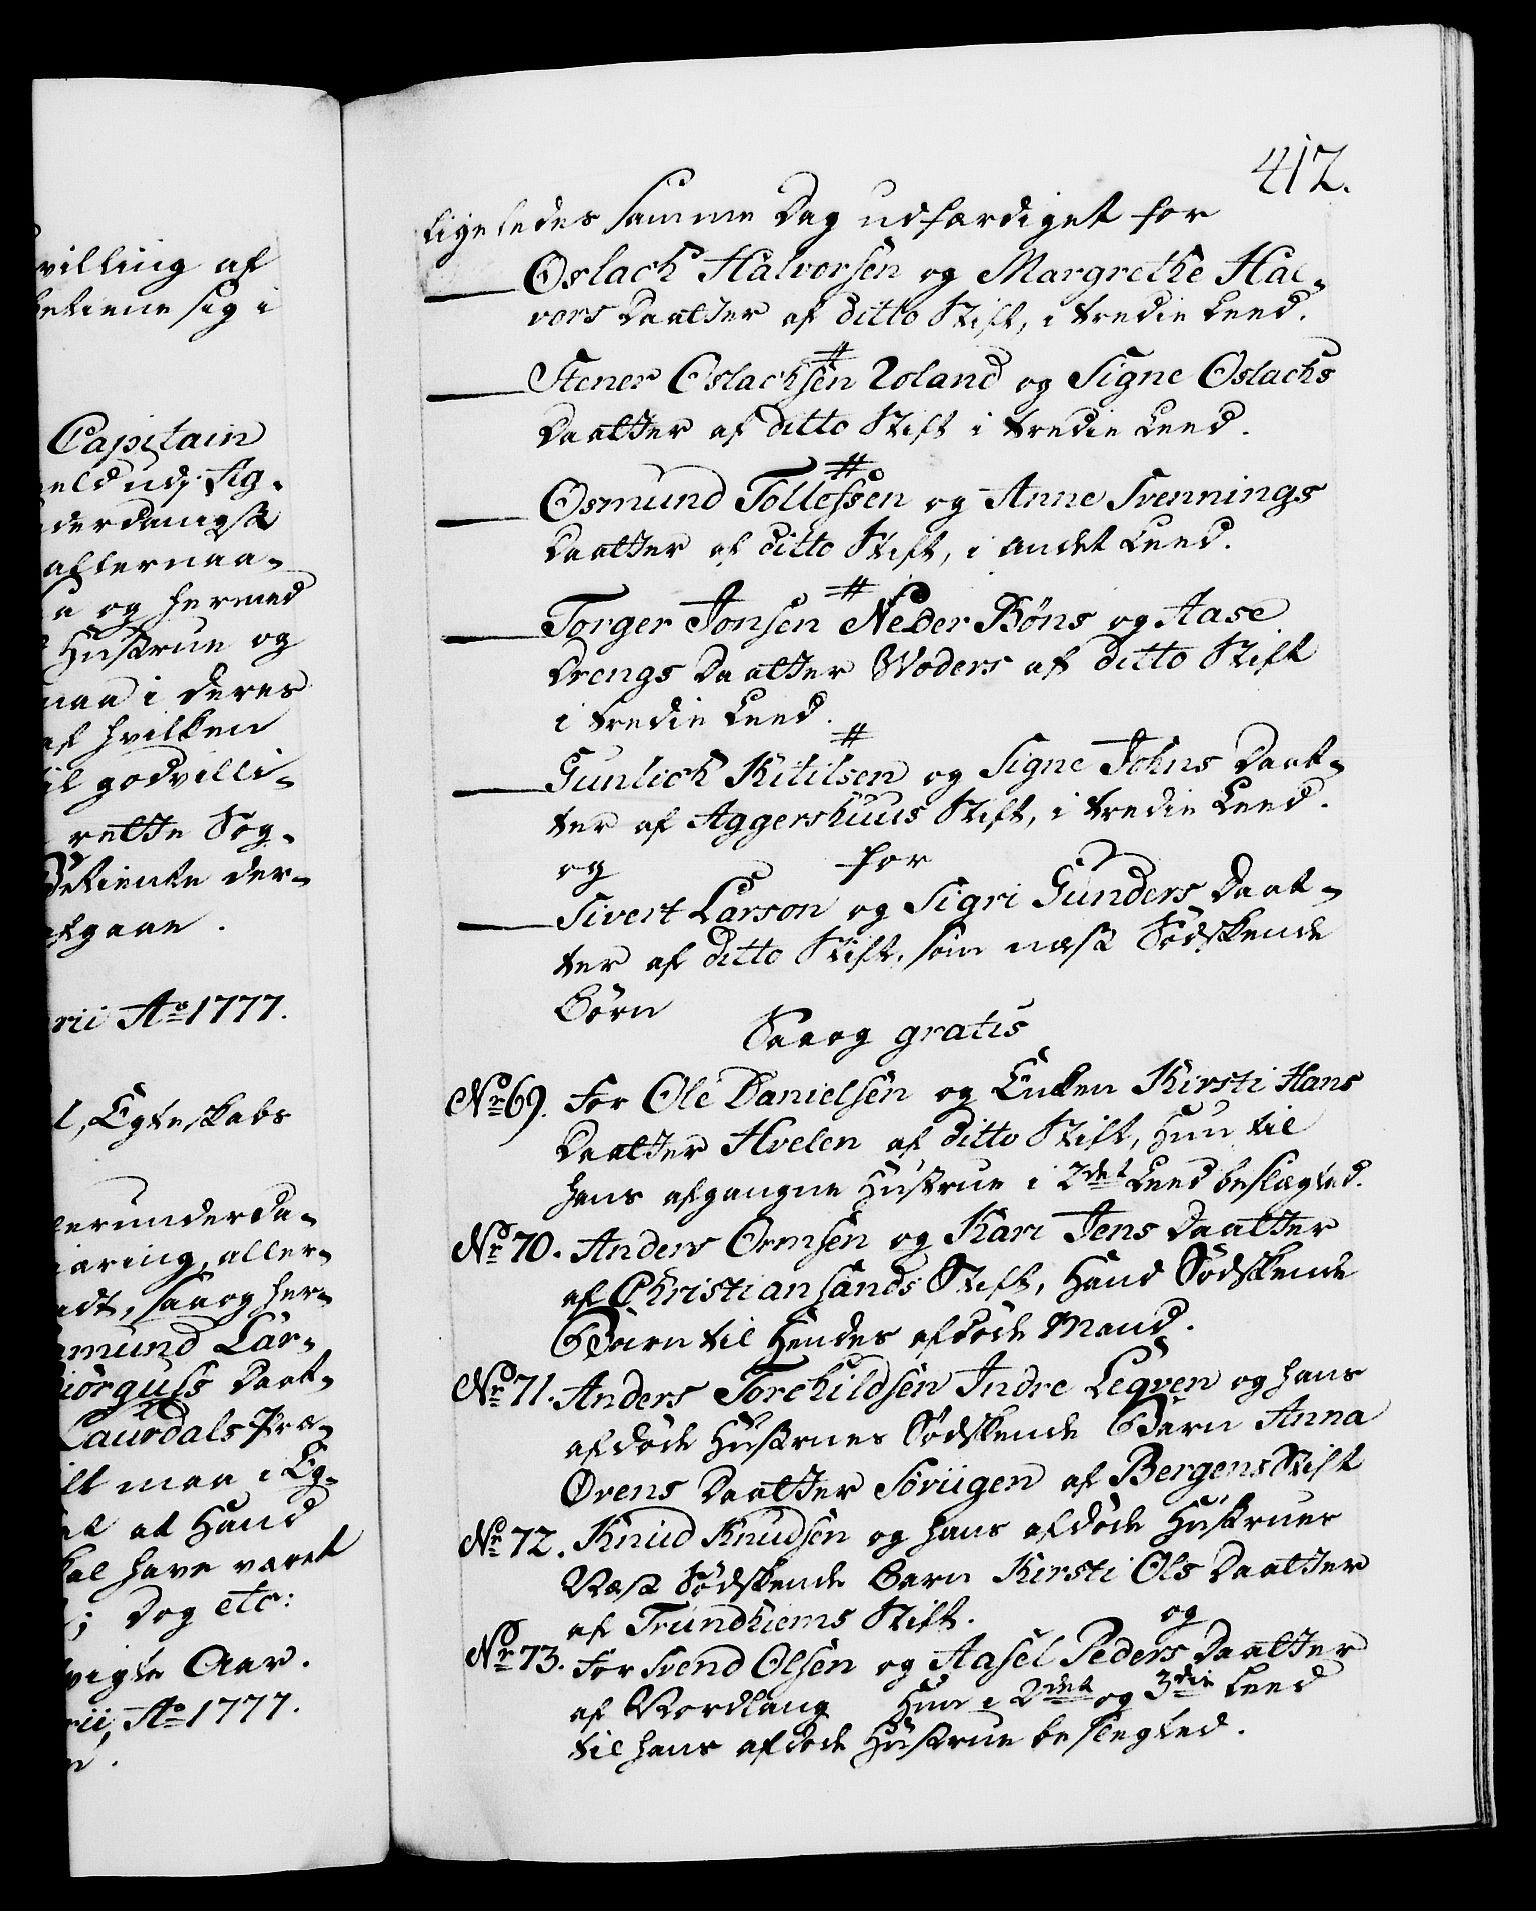 villing af
betiene sig i
Capitain
eld udj Sig-
derdanigst
allernaa-
a og hermed
Hustrue og
maa i deres
af hvilken
til godvilli-
rette Sog-
Betiente der-
afgaae.
rii Ao 1777.
l, Egteskabs
lerunderda-
iaring, aller-
adt, saaog her-
mund Lar-
iörguls Daat-
Laurdals Præ-
ilt maa i Eg-
at Hand
kal have været
; Dog etc:
vigte Aar.
rii, Ao 1777.
412.
ligeledes samme Dag udfærdiget for
Oslach Halvorsen og Margrethe Hal-
vors Daatter af ditto Stift, i tredie Leed.
#
Stener Oslachsen Roland og Signe Oslachs
Daatter af ditto Stift i tredie Leed.
#
Osmund Tollefssen og Anne Svennings
Daatter af ditto Stift, i andet Leed.
#
Torger Jonsen Neder Böns og Aase
Drengs Daatter Woders af ditto Stift
i tredie Leed.
#
Gunlich Kitilsen og Signe Johns Daat-
ter af Aggershuus Stift, i tredie Leed.
og for
Sivert Larson og Sigri Gunders Daat-
ter af ditto Stift, som næst Sødskende
Børn
Saaog gratis
No 69. For Ole Danielsen og Enken Kirsti Hans
Daatter Hvelen af ditto Stift, Hun til
hans afgangne Hustrue i 2det Leed beslægted.
No 70. Anders Ormsen og Kari Jens Daatter
af Christiansands Stift, Hand Sødskende
Barn til Hendes afdøde Mand.
No 71. Anders Torchildsen Indre Legven og hans
afdøde Hustrues Sødskende Barn Anna
Ørens Daatter Söviigen af Bergens Stift
No 72. Knud Knudsen og hans afdøde Hustrues
Næst Sødskende Barn Kirsti Ols Daatter
af Trundhiems Stift. og
No 73. For Svend Olsen og Aasel Peders Daatter
af Nordlang Hun i 2det og 3die Leed
til hans afdøde Hustrue beslegted.